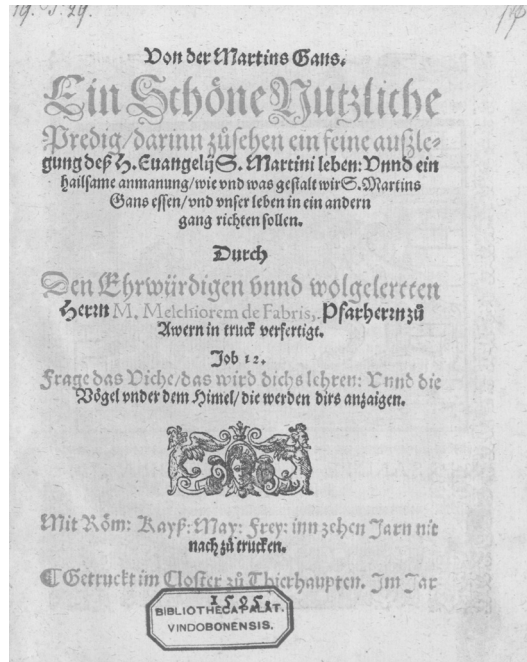 19. J. 29.
Von der Martins Gans.
Ein Schöne Nutzliche
Predig/darinn zůsehen ein feine außle-
gung deß H. Euangelij S. Martini leben: Vnnd ein
hailsame anmanung/wie vnd was gestalt wir S. Martins
Gans essen/vnd vnser leben in ein andern
gang richten sollen.
Durch
Den Ehrwürdigen vnnd wolgelertten
Herrn M. Melchiorem de Fabris,. Pfarherrn zů
Awern in truck verfertigt.
Job 12.
Frage das Viche/das wird dichs lehren: Vnnd die
Vögel vnder dem Himel/die werden dirs anzaigen.
Mit Röm: Kayß: May: Frey: inn zehen Jarn nit
nach zů trucken.
Getruckt im Closter zů Thierhaupten. Im Jar
1595.
BIBLIOTHECA PALAT.
VINDOBONENSIS.